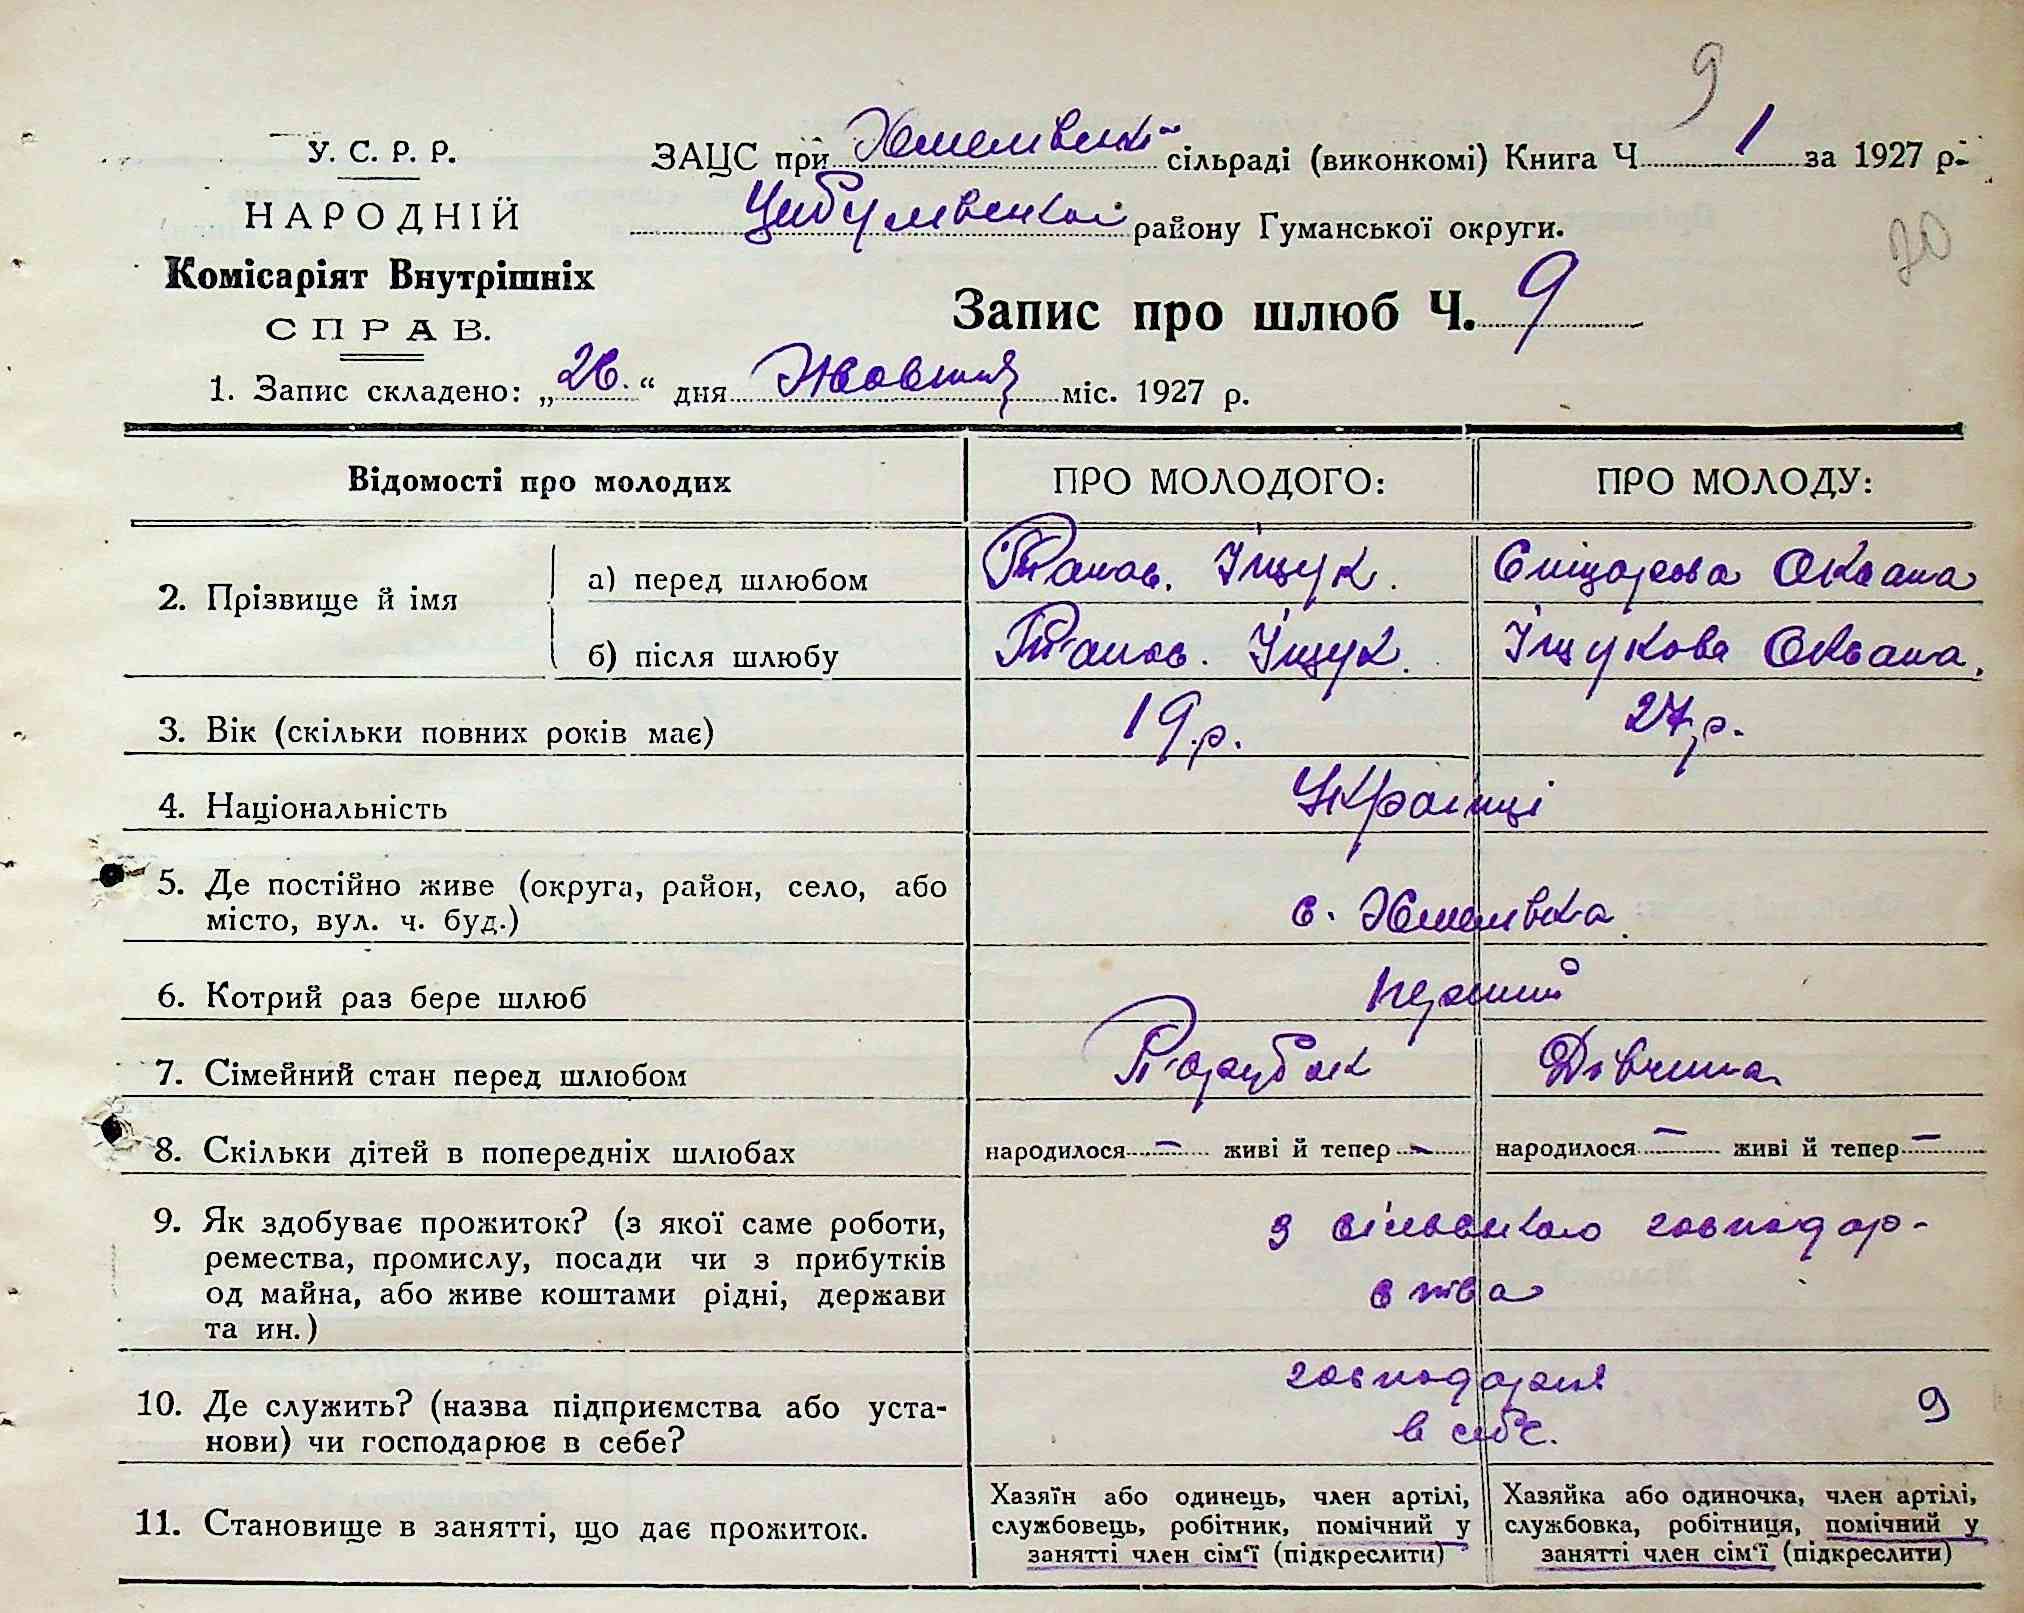 9
У. С. Р. Р.
ЗАЦС при Хмелівській сільраді (виконкомі) Книга Ч 1 за 1927 р.
НАРОДНІЙ
Цибулівської району Гуманської округи.
20
Комісаріят Внутрішніх
СПРАВ.
Запис про шлюб Ч. 9
1. Запис складено: „26.“ дня Жовтня міс. 1927 р.
Відомості про молодих
ПРО МОЛОДОГО:
ПРО МОЛОДУ:
2. Прізвище й імя
а) перед шлюбом
Іщук.
Оксана
б) після шлюбу
Іщук.
Іщукова Оксана.
3. Вік (скільки повних років має)
19 р.
27 р.
4. Національність
Українці
5. Де постійно живе (округа, район, село, або
місто, вул. ч. буд.)
с. Хмелівка.
6. Котрий раз бере шлюб
перший
7. Сімейний стан перед шлюбом
Парубок
Дівчина
8. Скільки дітей в попередніх шлюбах
народилося — живі й тепер -
народилося — живі й тепер —
9. Як здобуває прожиток? (з якої саме роботи,
ремества, промислу, посади чи з прибутків
од майна, або живе коштами рідні, держави
та ин.)
з сільського господар-
ства
10. Де служить? (назва підприємства або уста-
нови) чи господарює в себе?
в себе.
9
11. Становище в занятті, що дає прожиток.
Хазяїн або одинець, член артілі,
службовець, робітник, помічний у
занятті член сім'ї (підкреслити)
Хазяйка або одиночка, член артілі,
службовка, робітниця, помічний у
занятті член сім'ї (підкреслити)